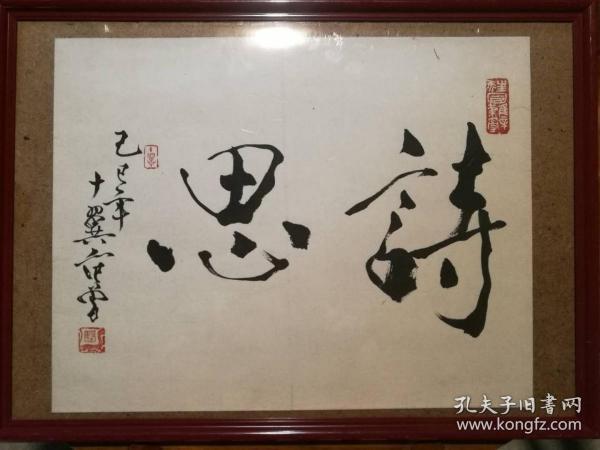 詩思
己巳年
十翼范曾
孔夫子旧书网
www.kongfz.com